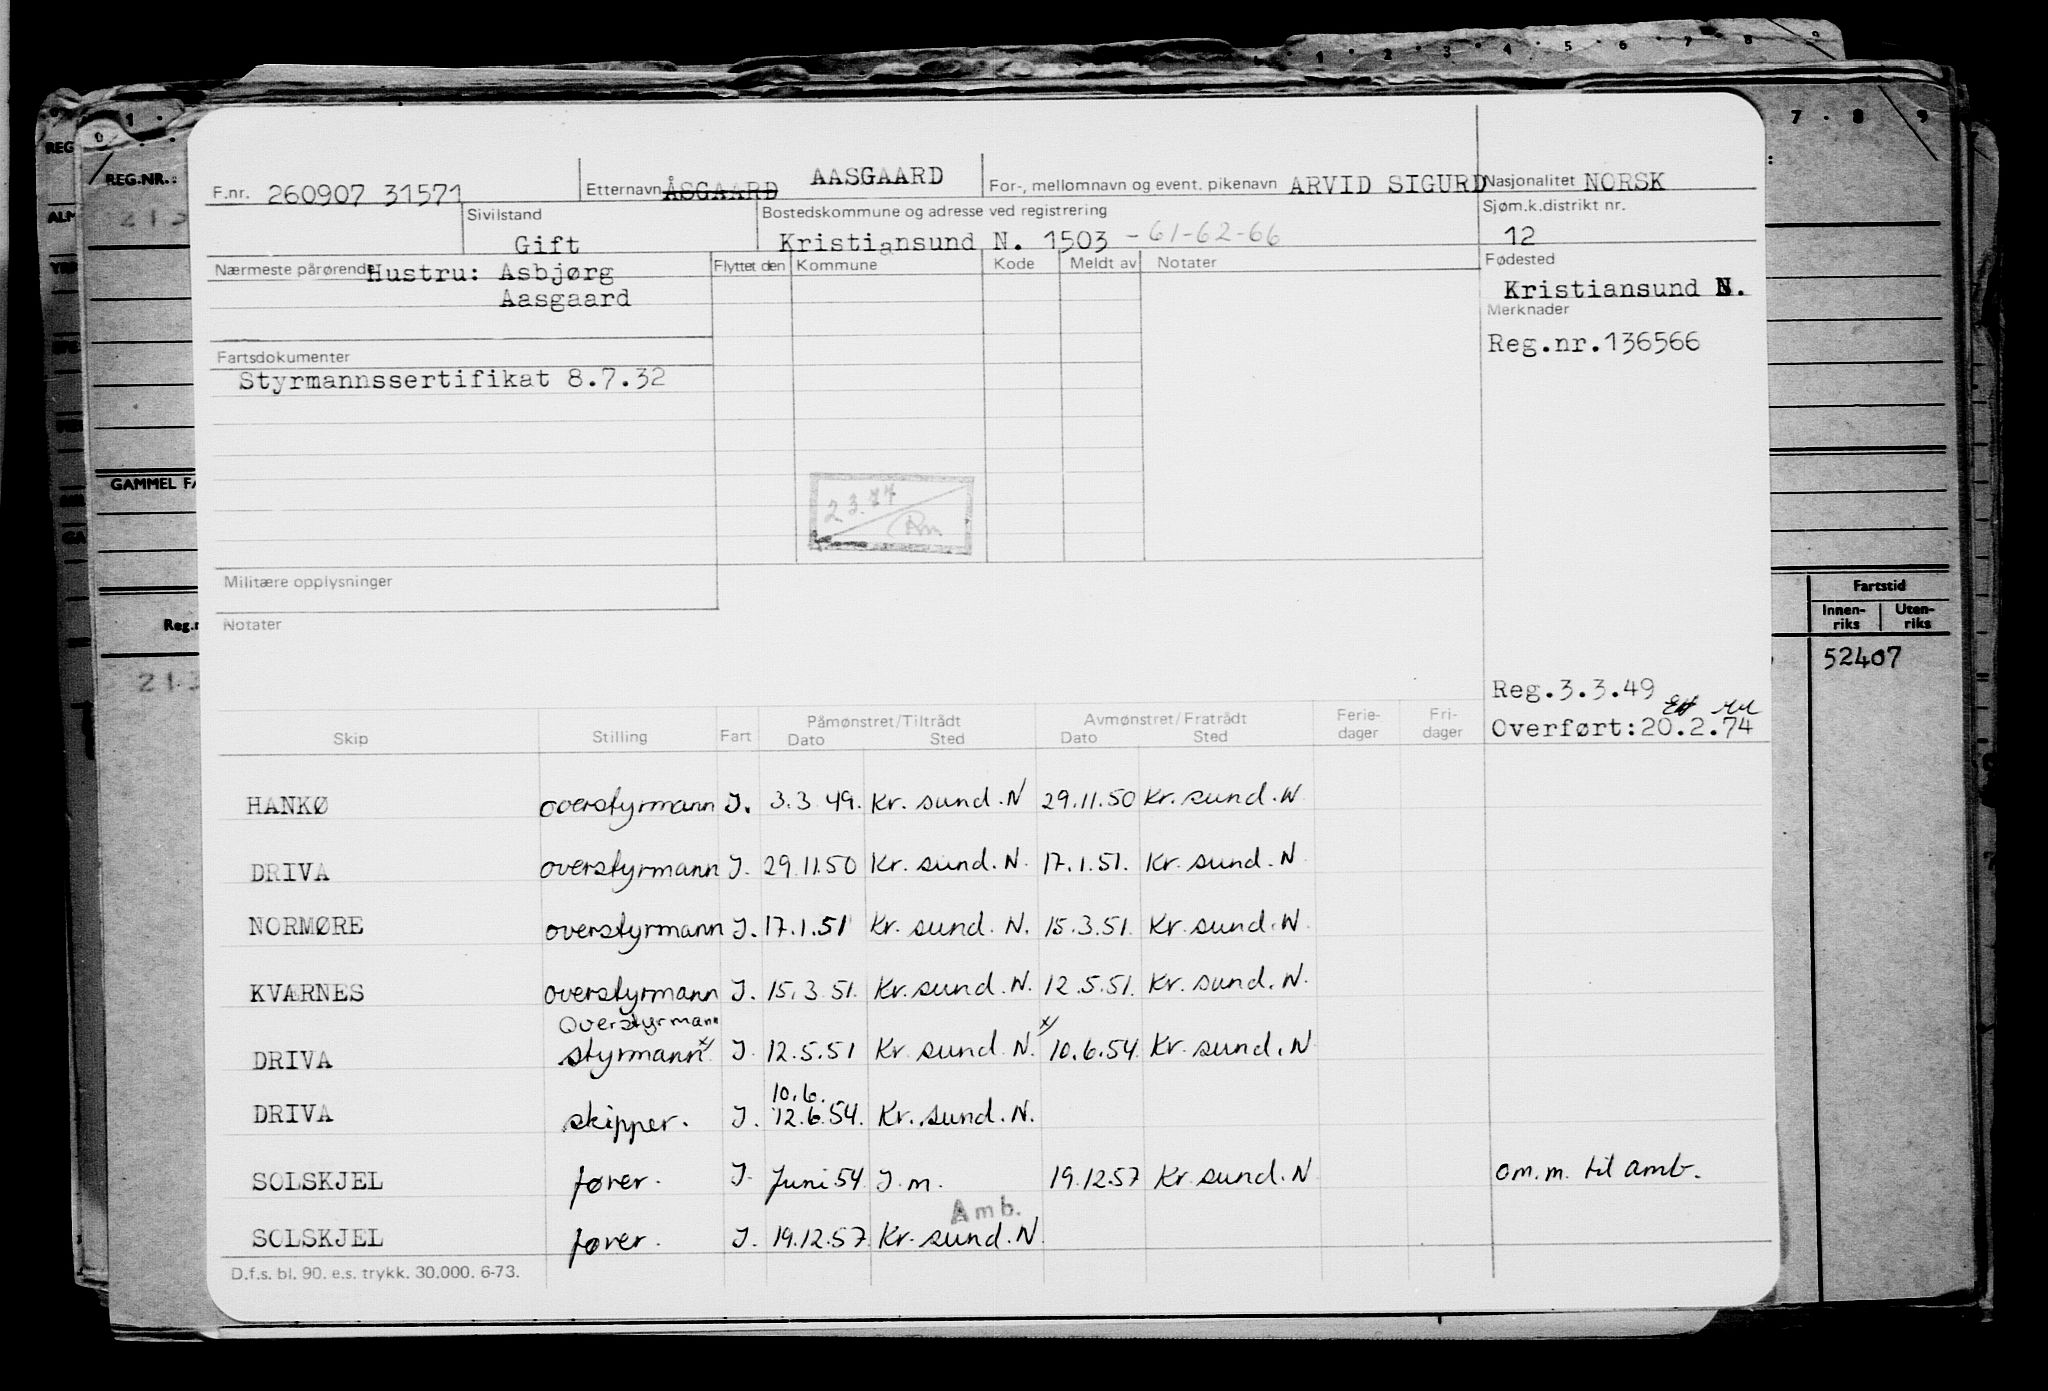 1 . 2 . 3 . 4 . 5 . 6 . 7 . 8 . 9
0 . 1 .
7 . 8 . 9
REG
REG.NR.:
ALM
213
GAMMEL FA
Reg.n
21.3
Fartstid
Innen-riks Uten-riks
52407
AASGAARD
F.nr. 260907 31571 Etternavn ÅSGAARD For-, mellomnavn og event. pikenavn ARVID SIGURD Nasjonalitet NORSK
Sivilstand Bostedskommune og adresse ved registrering Sjøm.k.distrikt nr.
Gift Kristiansund N. 1503 - 61-62-66 12
Nærmeste pårørende Hustru: Asbjørg Flyttet den Kommune Kode Meldt av Notater Fødested
Aasgaard Kristiansund N.
Merknader
Reg.nr.136566
Fartsdokumenter
Styrmannssertifikat 8.7.32
2.3.77
Rm
Militære opplysninger
Notater
Reg.3.3.49
Overført:20.2.74
Påmønstret/Tiltrådt Avmønstret/Fratrådt Ferie- Fri-
Skip Stilling Fart Dato Sted Dato Sted dager dager
HANKØ overstyrmann I. 3.3 49. Kr. sund. N 29.11.50 Kr. sund. N
DRIVA overstyrmann I. 29.11.50 Kr. sund. N. 17.1.51. Kr. sund. N
NORMØRE overstyrmann I. 17.1.51 Kr. sund. N. 15.3.51. Kr. sund. N
KVÆRNES overstyrmann I. 15.3 51. Kr. sund. N. 12.5.51. Kr. sund. N.
Overstyrmann
DRIVA styrmann x/ I. 12.5.51 Kr. sund. N. x/ 10.6.54. Kr. sund. N
10.6.
DRIVA skipper. I. 12.6.54. Kr. sund. N.
SOLSKJEL fører. I. Juni 54 I. m. 19.12.57 Kr. sund. N om.m. til amb.
Amb.
SOLSKJEL fører. I. 19.12.57 Kr. sund. N.
D.f.s. bl. 90. e.s. trykk. 30.000. 6-73.